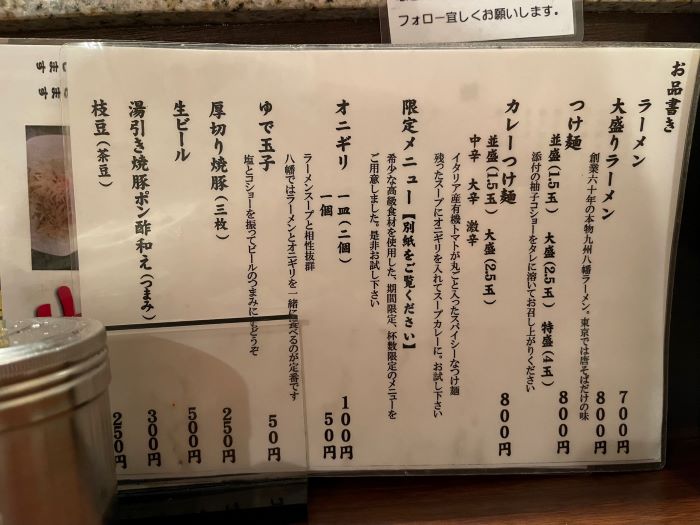 フォロー宜しくお願いします。
お品書き
ラーメン 700円
大盛りラーメン 800円
創業六十年の本物九州八幡ラーメン。東京では唐そばだけの味
つけ麺
並盛(1.5玉) 大盛(2.5玉) 特盛(4玉) 800円
添付の柚子コショーをタレに溶いてお召し上がりください
カレーつけ麺 800円
並盛(1.5玉) 大盛(2.5玉)
中辛 大辛 激辛
イタリア産有機トマトが丸ごと入ったスパイシーなつけ麺
残ったスープにオニギリを入れてスープカレーに。お試し下さい
限定メニュー【別紙をご覧ください】
希少な高級食材を使用した、期間限定、杯数限定のメニューを
ご用意しました。是非お試し下さい
オニギリ 一皿(二個) 100円
一個 50円
ラーメンスープと相性抜群
八幡ではラーメンとオニギリを一緒に食べるのが定番です
ゆで玉子 50円
塩とコショーを振ってビールのつまみにどうぞ
厚切り焼豚(三枚) 250円
生ビール 500円
湯引き焼豚ポン酢和え(つまみ) 300円
枝豆(茶豆) 250円